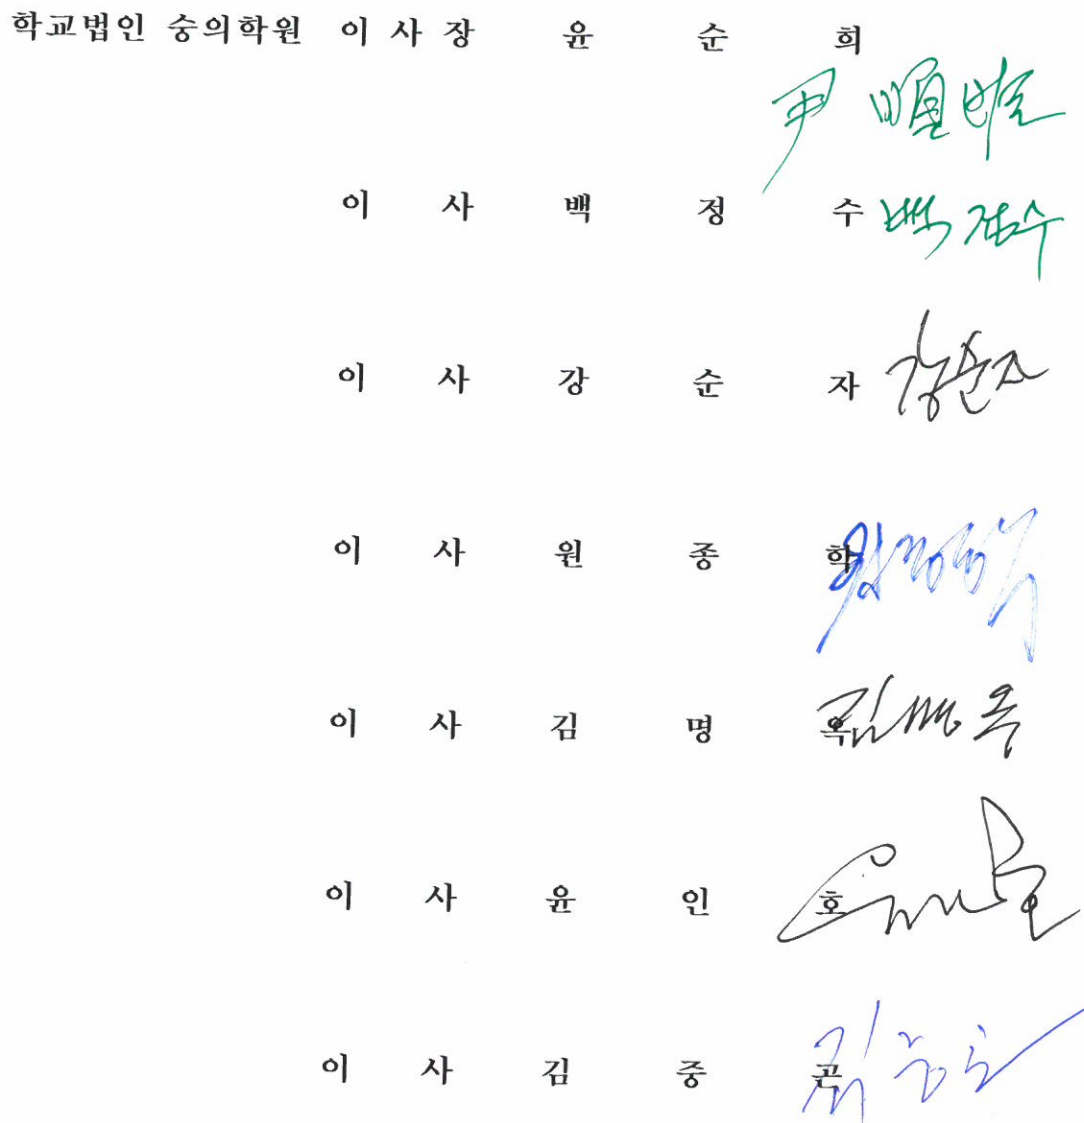 학교법인 숭의학원 이 사 장 윤 순 희
이 사 백 정 수 백정수
이 사 강 순 자 강순자
이 사 원 종 학
이 사 김 명 옥 김명옥
이 사 윤 인 호
이 사 김 중 곤